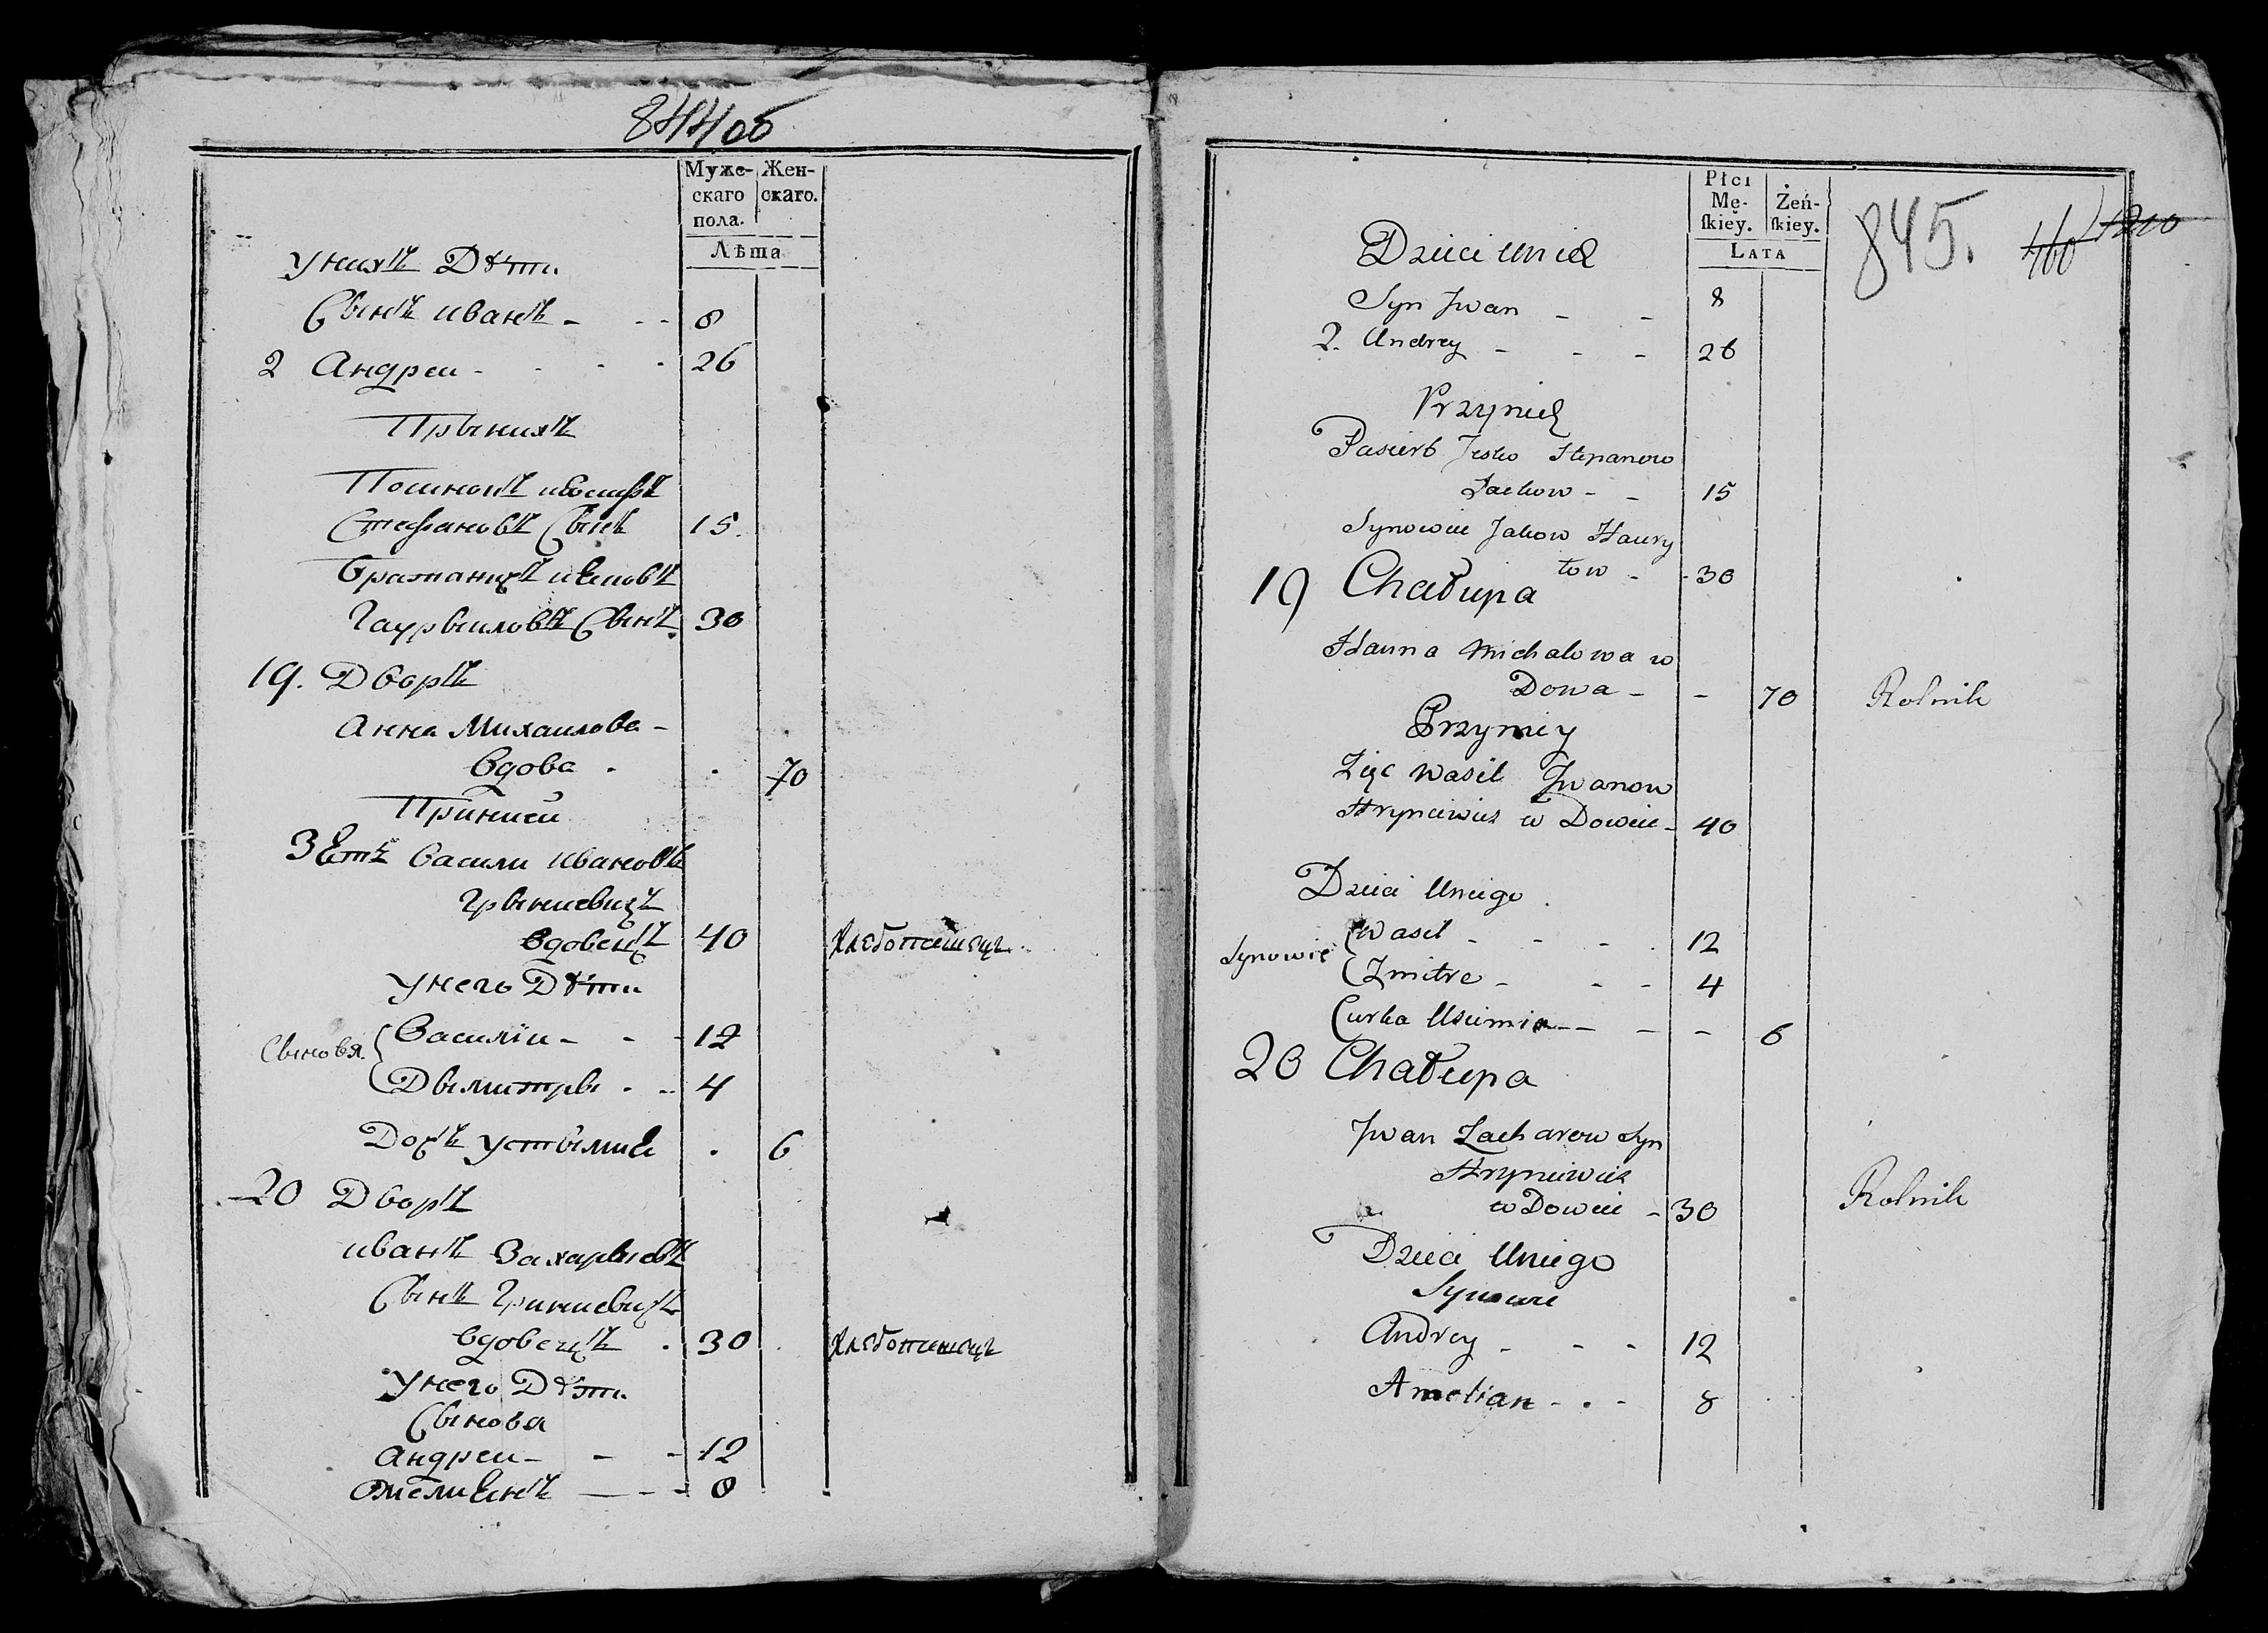 844об
Муже-
скаго
пола.
Жен-
скаго.
Лѣта
у нихъ Дѣти
Сынъ иванъ - - - 8
2 Андреи - - - - 26
При нихъ
Стефановъ Сынъ 15.
Гаурыиловъ Сынъ. 30
19. Дворъ
Анна Михаилова -
вдова - . 70
При ниеи
Зеть Васили ивановъ
Грыниевичъ
вдовецъ 40 Хлебопашецъ
у него Дѣти
Сыновя. Василіи - - - 12
Дымитры - - 4
Дочъ устымие . 6
20 Дворъ
иванъ Захарыевъ
Сынъ Гриниевичъ
вдовецъ . 30 Хлебопашецъ
у него Дѣти
Сыновя
андреи - - - 12
Омелиенъ - - - 8
Płci
Mę-
skiey.
Żeń-
skiey.
Lata
845.
460
1210
Dzieci u nich
Syn Jwan - - 8
2. Andrey - - - 26
Przynich
Pasierb Jesko Stepanow
15
Synowiec Jakow Hawry
łow - - 30
19 Chałupa
Hanna Michałowa w
Dowa - - 70 Rolnik
Przyniey
Zięc Wasil Jwanow
Hryniewicz w Dowiec - 40
Dzieci Uniego
Synowie Wasil - - - - 12
Zmitre - - - 4
Curka Uscimia - - - - 6
20 Chałupa
Jwan Zacharow Syn
Hryniewicz
w Dowiec - 30 Rolnik
Dzieci Uniego
Synowie
Andrey - - - 12
Amelian - . - 8